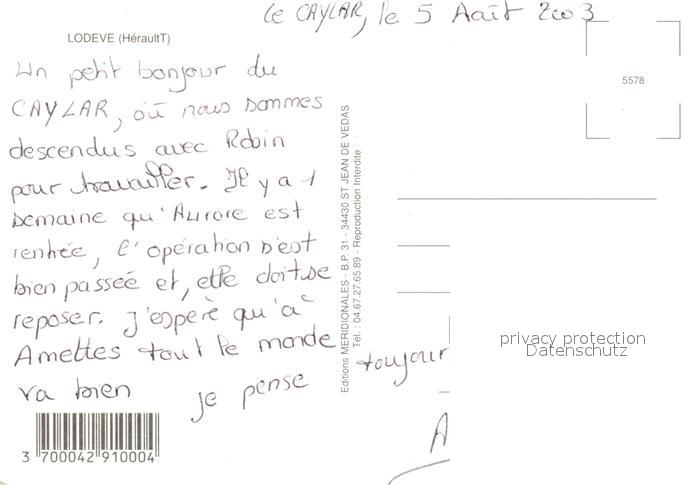 Le CAYLAR, le 5 Août 2003
LODEVE (HéraultT)
5578
Un petit bonjour du
CAYLAR, où nous sommes
descendus avec Robin
pour travailler. Il y a 1
semaine qu'Aurore est
rentrée, l'opération s'est
bien passée et, elle doit se
reposer. J'espère qu'à
Amettes tout le monde
va bien je pense
toujour
A
Editions MERIDIONALES - B.P. 31 - 34430 ST JEAN DE VEDAS
Tél. : 04.67.27.65.89 - Reproduction Interdite
privacy protection
Datenschutz
3 700042 910004